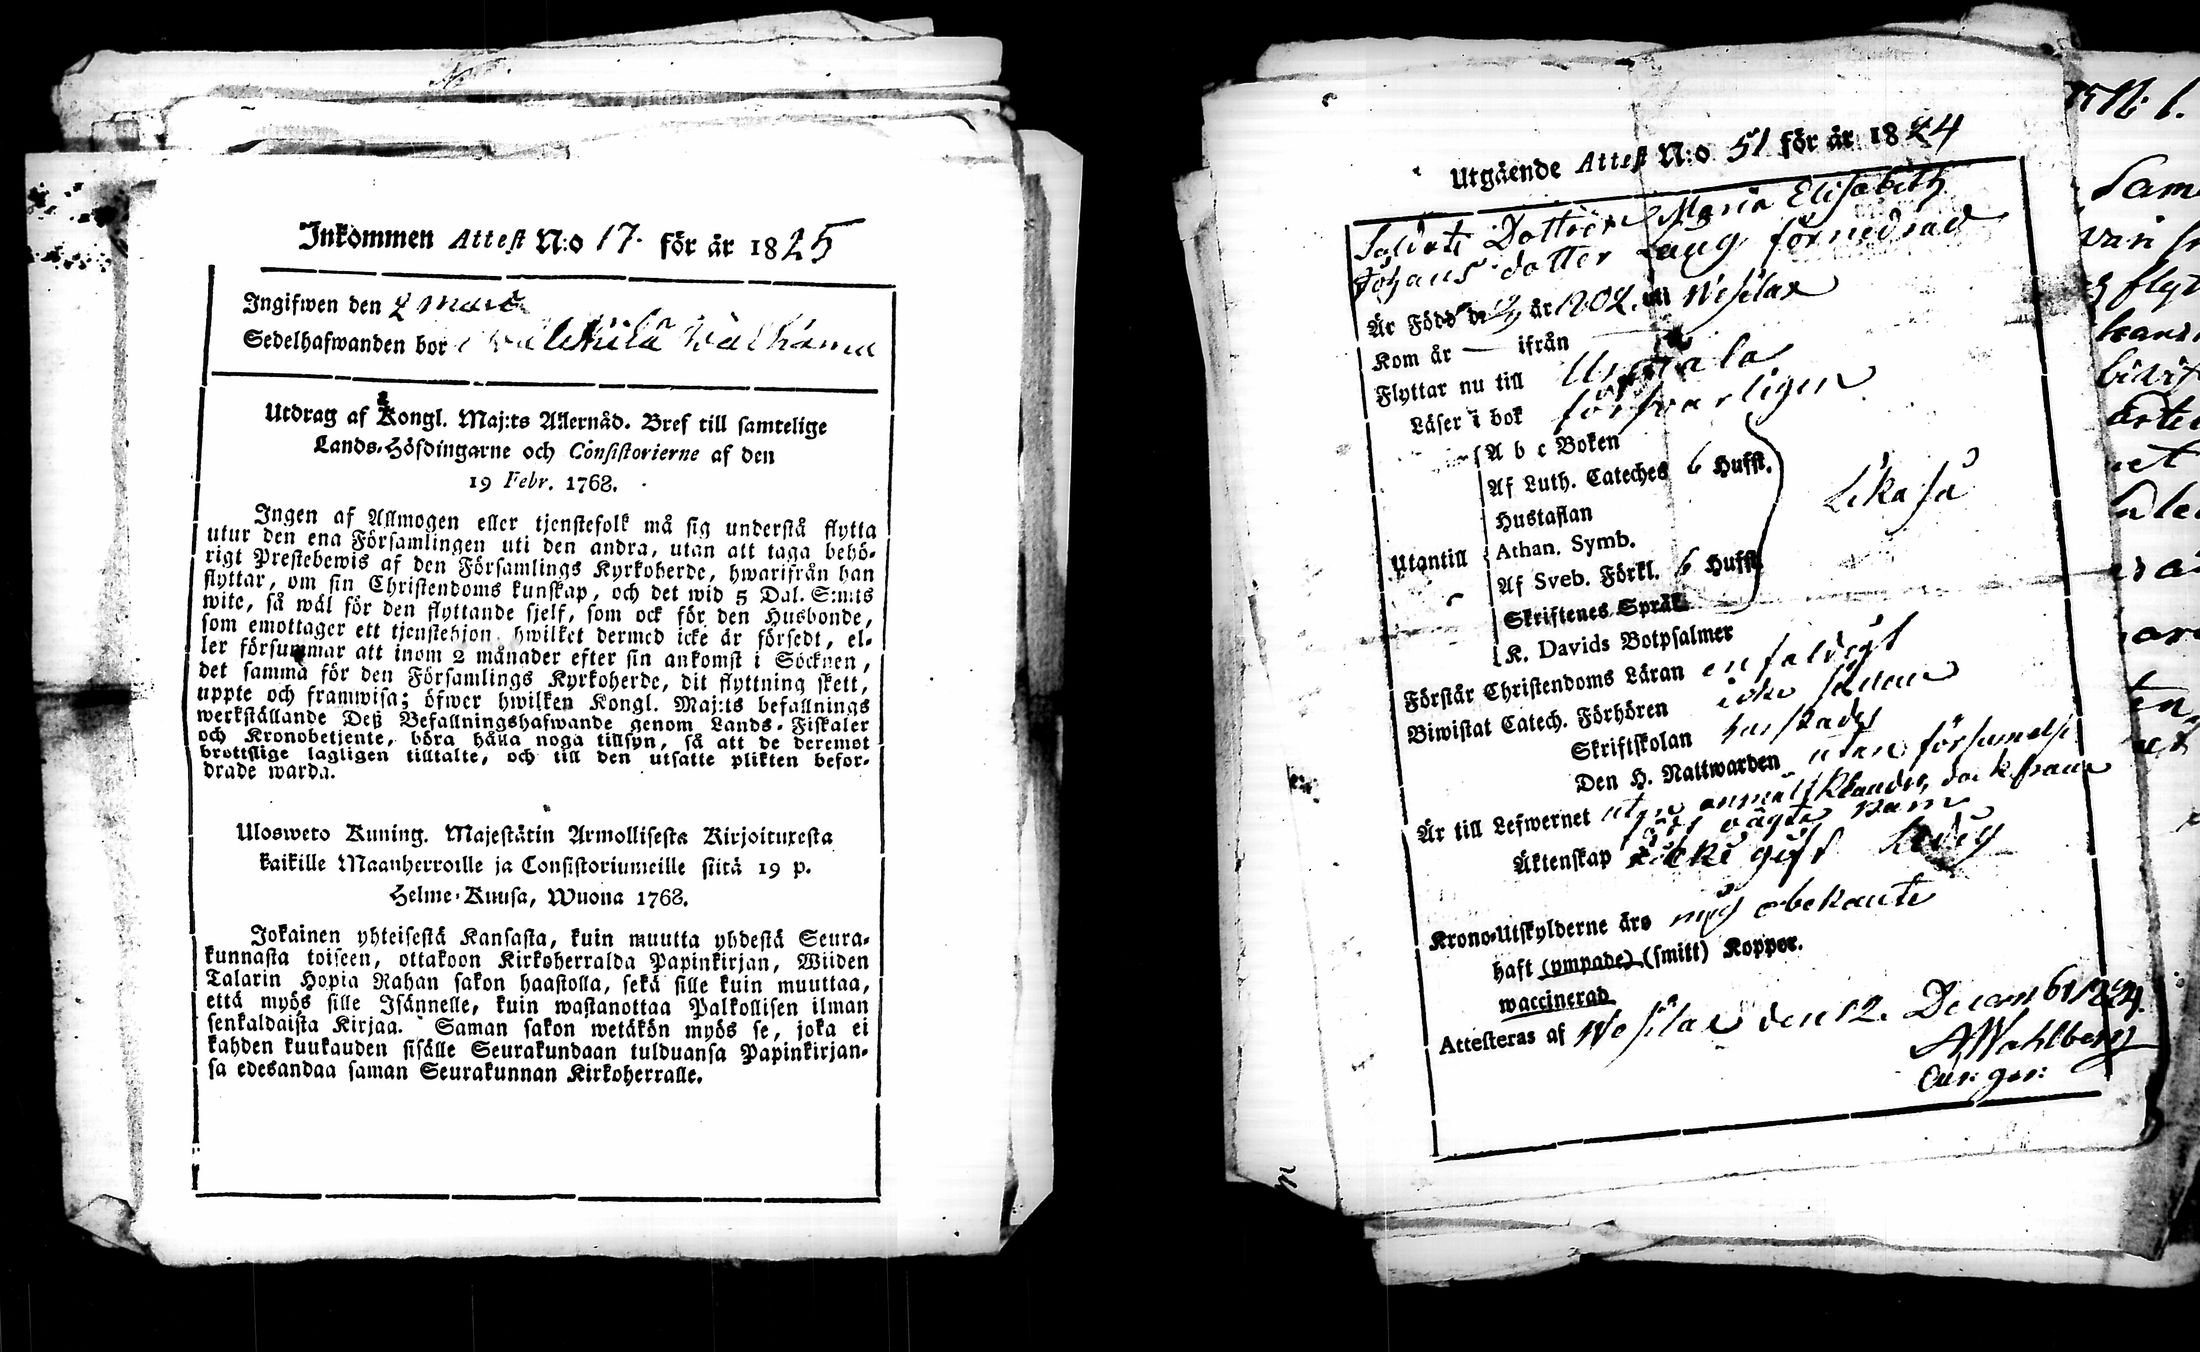 Inkommen Attest N:o 17. för år 1825
Ingifwen den 2 mars
Sedelhafwanden bor
Utdrag af Kongl. Maj:ts Allernåd. Bref till samtelige
Lands-Höfdingarne och Consistorierne af den
19 Febr. 1768.
Ingen af Allmogen eller tjenstefolk må sig understå flytta
utur den ena Församlingen uti den andra, utan att taga behö-
rigt Prestebewis af den Församlings Kyrkoherde, hwarifrån han
flyttar, om sin Christendoms kunskap, och det wid 5 Dal. S:mts
wite, så wäl för den flyttande sjelf, som ock för den Husbonde,
som emottager ett tjenstehjon, hwilket dermed icke är försedt, el-
ler försummar att inom 2 månader efter sin ankomst i Söcknen,
det samma för den Församlings Kyrkoherde, dit flyttning skett,
uppte och framwisa; öfwer hwilken Kongl. Maj:ts befallnings
werkställande Deß Befallningshafwande genom Lands-Fiskaler
och Kronobetjente, böra hålla noga tillsyn, så att de deremot
brottslige lagligen tilltalte, och till den utsatte plikten befor-
drade warda.
Ulosweto Kuning. Majestätin Armollisesta Kirjoituxesta
kaikille Maanherroille ja Consistoriumeille siitä 19 p.
Helme-Kuusa, Wuona 1768.
Jokainen yhteisestä Kansasta, kuin muutta yhdestä Seura-
kunnasta toiseen, ottakoon Kirkoherralda Papinkirjan, Wiiden
Talarin Hopia Rahan sakon haastolla, sekä sille kuin muuttaa,
että myös sille Isännelle, kuin wastanottaa Palkollisen ilman
senkaldaista Kirjaa. Saman sakon wetäkön myös se, joka ei
kahden kuukauden sisälle Seurakundaan tulduansa Papinkirjan-
sa edesandaa saman Seurakunnan Kirkoherralle.
Utgående Attest N:o 51 för år 1824
Soldats Dottren Maria Elisabeth
Johans dotter Lång förnedrad
Är Född d. år 1802. uti Wesilax
Kom år — ifrån —
Flyttar nu till Urjala
Läser i bok försvarligen
A b c Boken
Af Luth. Cateches 6 Hufst.
Hustaflan
Likaså
Utantill Athan. Symb.
Af Sveb. Förkl. 6 Hufst.
Skriftenes Språk
K. Davids Botpsalmer
Förstår Christendoms Läran enfaldigt
Biwistat Catech. Förhören icke sällan
Skriftskolan
Den H. Nattwarden utan försumelse
Är till Lefwernet utan
Äktenskap icke gift ledig
Krono-Utskylderne äro mig obekante
haft (ympade) (smitt) Koppor.
waccinerad
Attesteras af Wesilax den 12. December 1824.
A Wahlberg